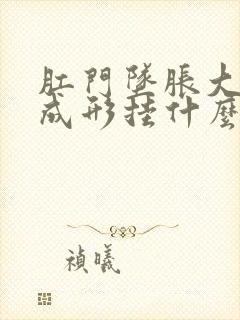 肛門墜脹大
成形挂什麼
禎曦